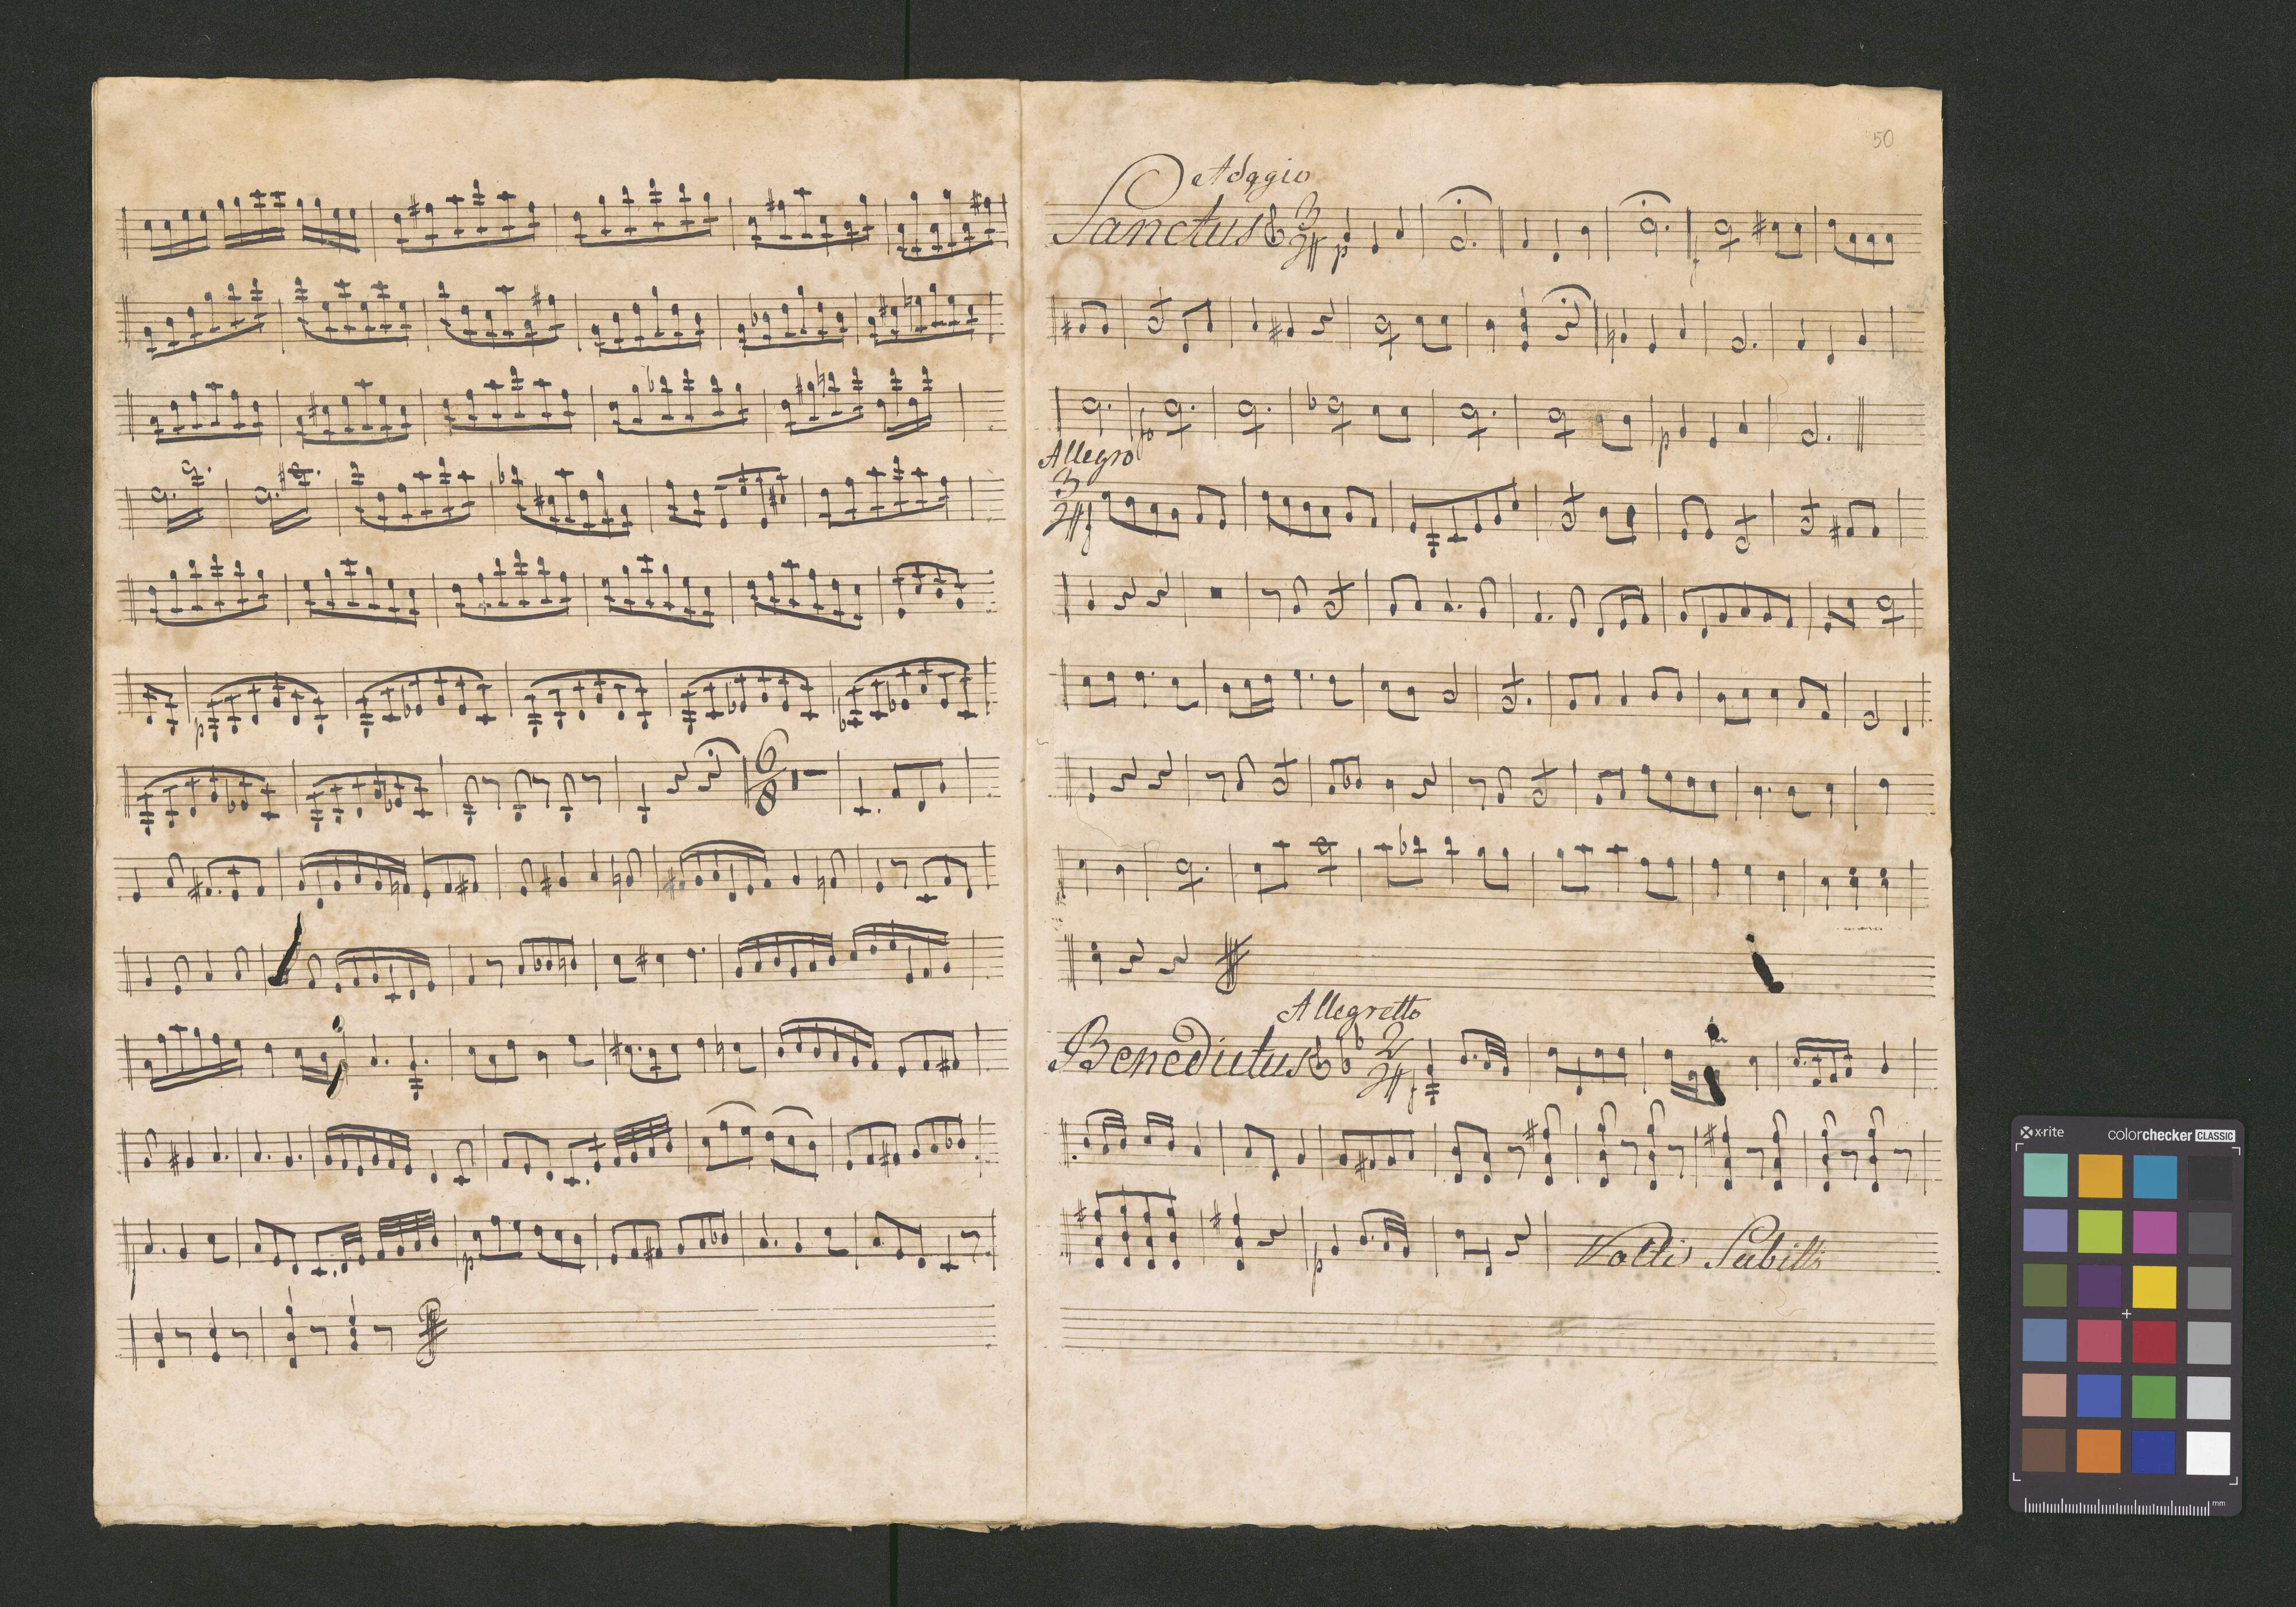 50
Adagio
Sanctus
3
4
p
Allegro
p
p
3
4
Allegretto
Benedictus
2
4
p
Volti Subitti
p
6
8
p
x-rite
colorchecker CLASSIC
mm